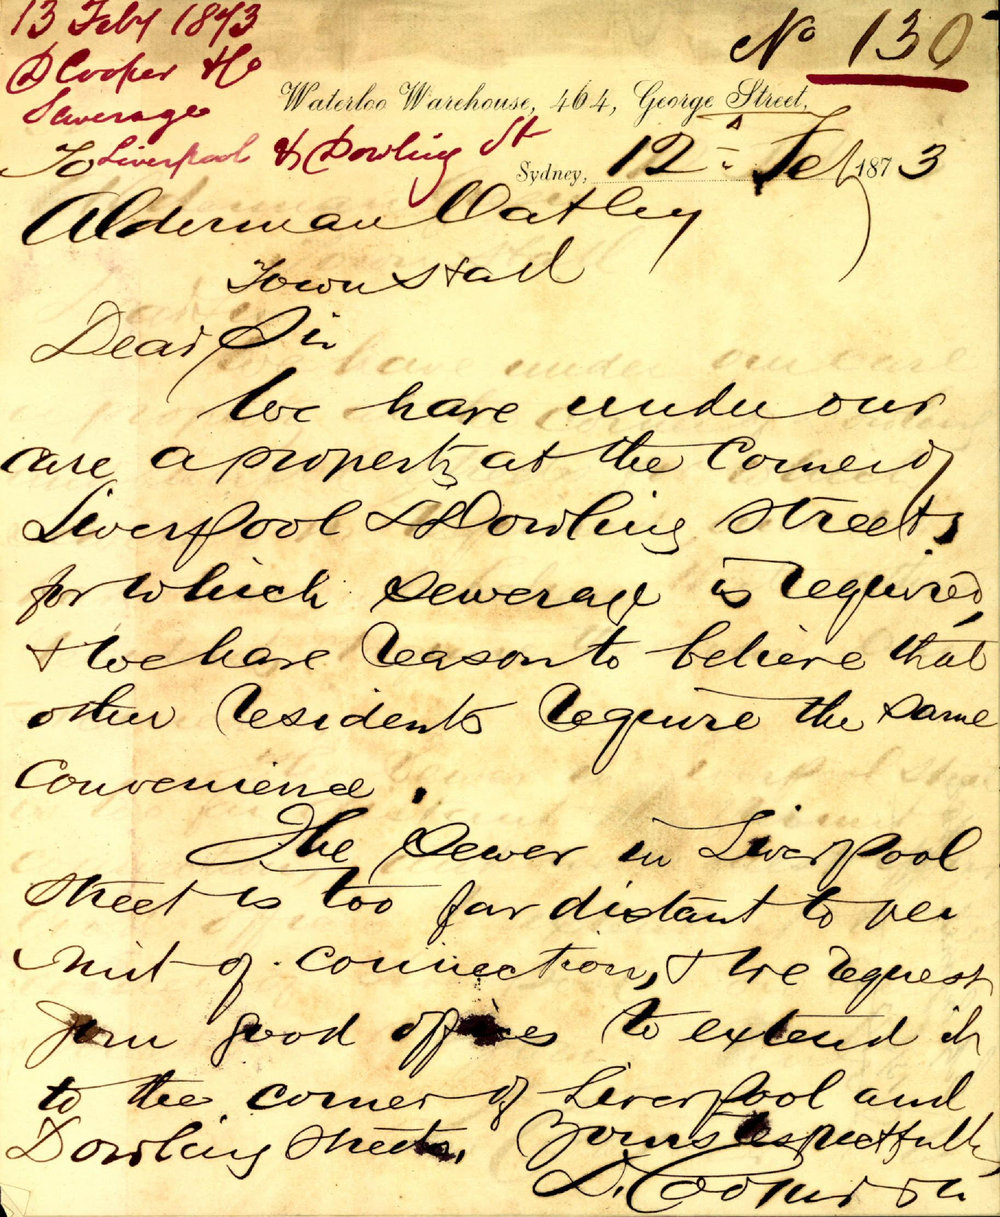 13 Feby 1873
D Cooper & Co
Sewerage
Liverpool & Dowling St
No 130
Waterloo Warehouse, 464, George Street,
Sydney, 12th Feby 1873
To
Alderman Oatley
Town Hall
Dear Sir
We have under our
care a property at the Corner of
Liverpool & Dowling Streets,
for which sewerage is required,
& we have reason to believe that
other residents require the same
convenience.
The Sewer in Liverpool
Street is too far distant to per
mit of connection, & we request
your good offices to extend it
to the corner of Liverpool and
Dowling Streets. Yours respectfully
D. Cooper & Co